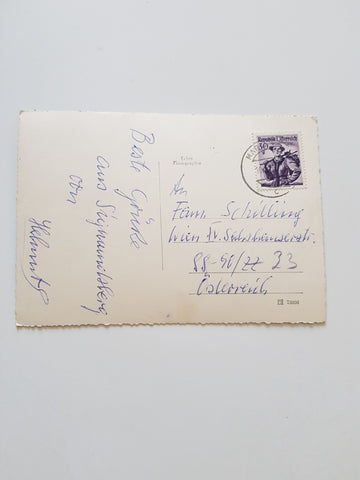 Beste Grüße
aus Sigmundsberg
Helmut
Echte
Photographie
Republik Österreich
An
Fam. Schilling
Wien
88-90/22 23
Österreich